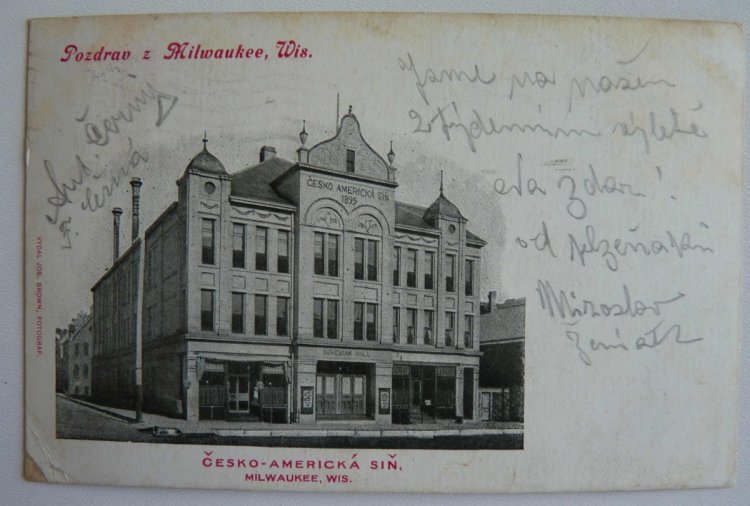 Pozdrav z Milwaukee, Wis.
Jsme na našem
2 týdenním výletě
Na zdar!
od plzeňáků
Miroslav
Ant. Černý
F. Černá
ČESKO AMERICKÁ SIŇ
1895
BOHEMIAN HALL
VYDAL JOS. BROWN, FOTOGRAF.
ČESKO-AMERICKÁ SIŇ,
MILWAUKEE, WIS.